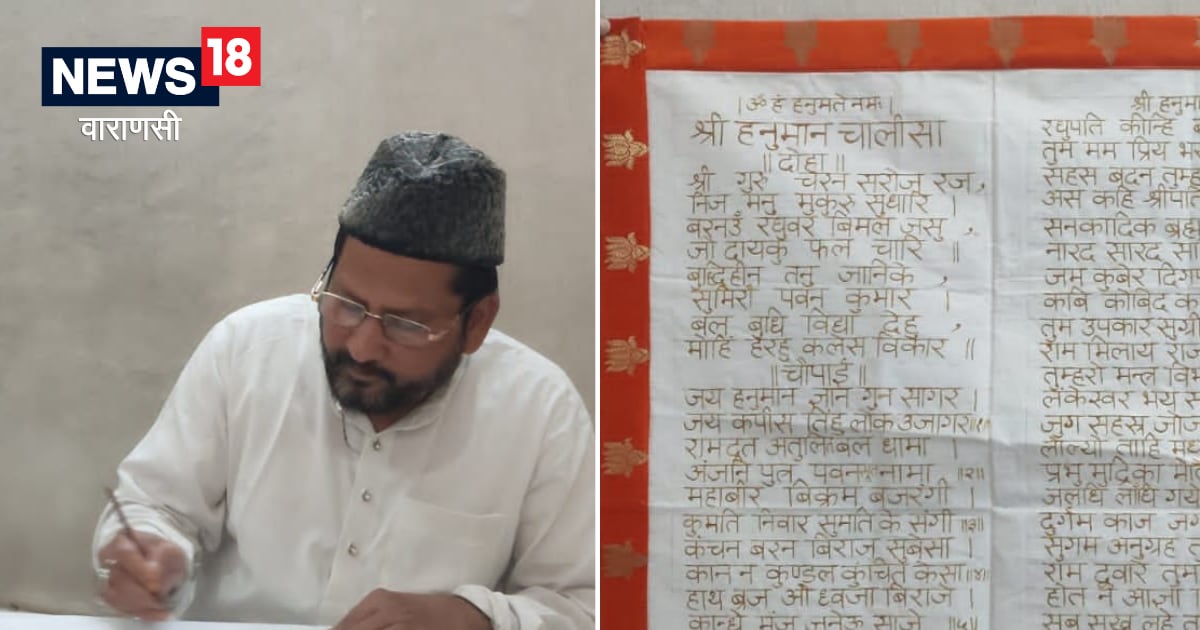 NEWS 18
वाराणसी
। ॐ हं हनुमते नमः ।
श्री हनुमान चालीसा
॥ दोहा ॥
श्री गुरु चरन सरोज रज ,
निज मनु मुकुरु सुधारि ।
बरनउँ रघुवर बिमल जसु ,
जो दायकु फल चारि ॥
बुद्धिहीन तनु जानिके ,
सुमिरौं पवन कुमार ।
बल बुधि विद्या देहु ,
मोहि हरहु कलेस विकार ॥
॥ चौपाई ॥
जय हनुमान ज्ञान गुन सागर ।
जय कपीस तिहुँ लोक उजागर ॥१॥
राम दूत अतुलित बल धामा ।
अंजनि पुत्र पवन नामा ॥२॥
महाबीर बिक्रम बजरंगी ।
कुमति निवार सुमति के संगी ॥३॥
कंचन बरन बिराज सुबेसा ।
कानन कुण्डल कुंचित केसा ॥४॥
हाथ बज्र औ ध्वजा बिराजे ।
कान्धे मूंज जनेऊ साजे ॥५॥
श्री हनुमा
रघुपति कीन्हि
तुम मम प्रिय
सहस बदन तुम्ह
अस कहि श्रीपति
सनकादिक
नारद सारद
जम कुबेर
कबि कोबिद
तुम उपकार
राम मिलाय
तुम्हरो मन्त्र
लंकेस्वर भए
जुग सहस्र
लील्यो ताहि
प्रभु मुद्रिका
जलधि लाँघि
दुर्गम काज
सुगम अनुग्रह
राम दुवारे
होत न आज्ञा
सब सुख लहै